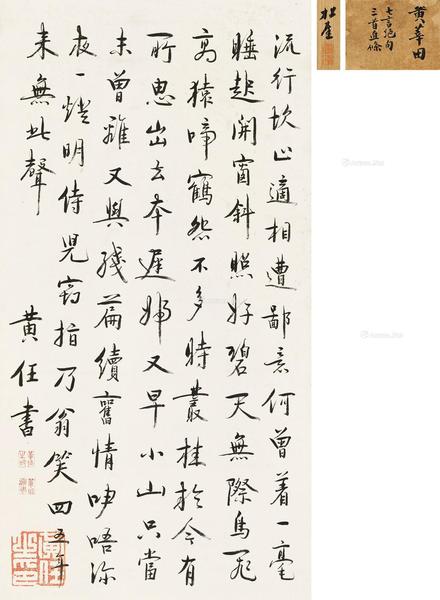 黃莘田
七言絕句
流行坎止適相遭鄙意何曾着一毫
睡起開窗斜照好碧天無際鳥飛
高猿啼鶴怨不多時叢桂於今有
所思出去本遲歸又早小山只當
未曾離又與殘篇續舊情吟唔深
夜一燈明侍兒竊指乃翁笑四五年
来無此聲
黃任書